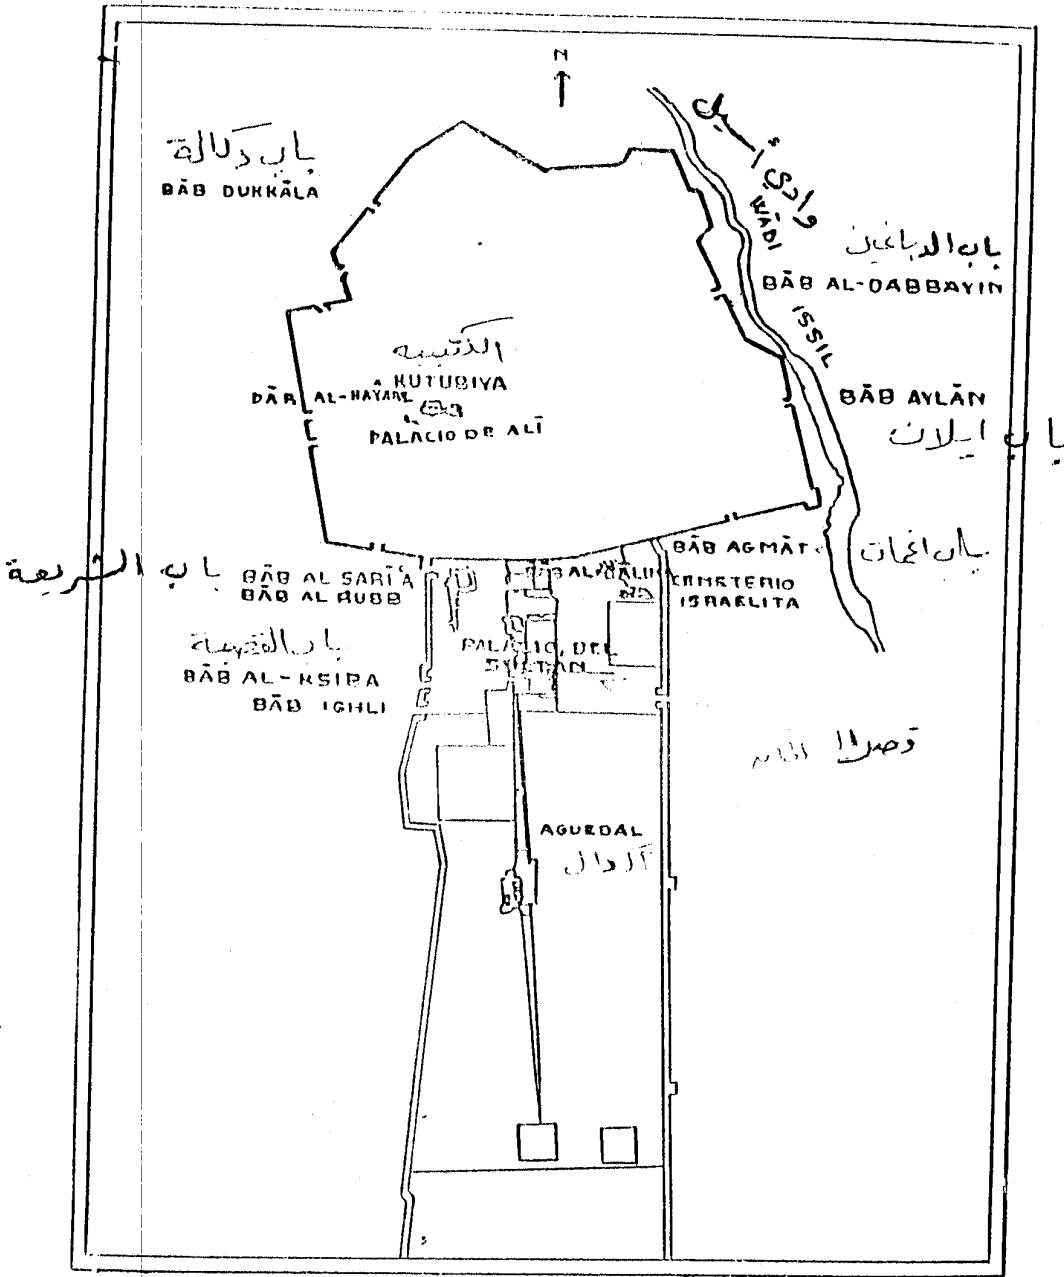 N
وادي أسيل
باب دكالة
BĀB DUKKĀLA
WĀDI
ISSIL
باب الدباغين
BĀB AL-DABBAYIN
الكتبيه
KUTUBIYA
DĀR AL-HAŶAR
PALACIO DE ALĪ
BĀB AYLĀN
باب ايلان
BĀB AGMĀT
باب اغمات
باب الشريعة
BĀB AL SARĪ'A
BĀB AL RUBB
CEMETERIO
ISRAELITA
باب القصبة
BĀB AL-KSIBA
BĀB IGHLI
PALACIO DEL
SULTAN
قصر
AGUEDAL
أكدال